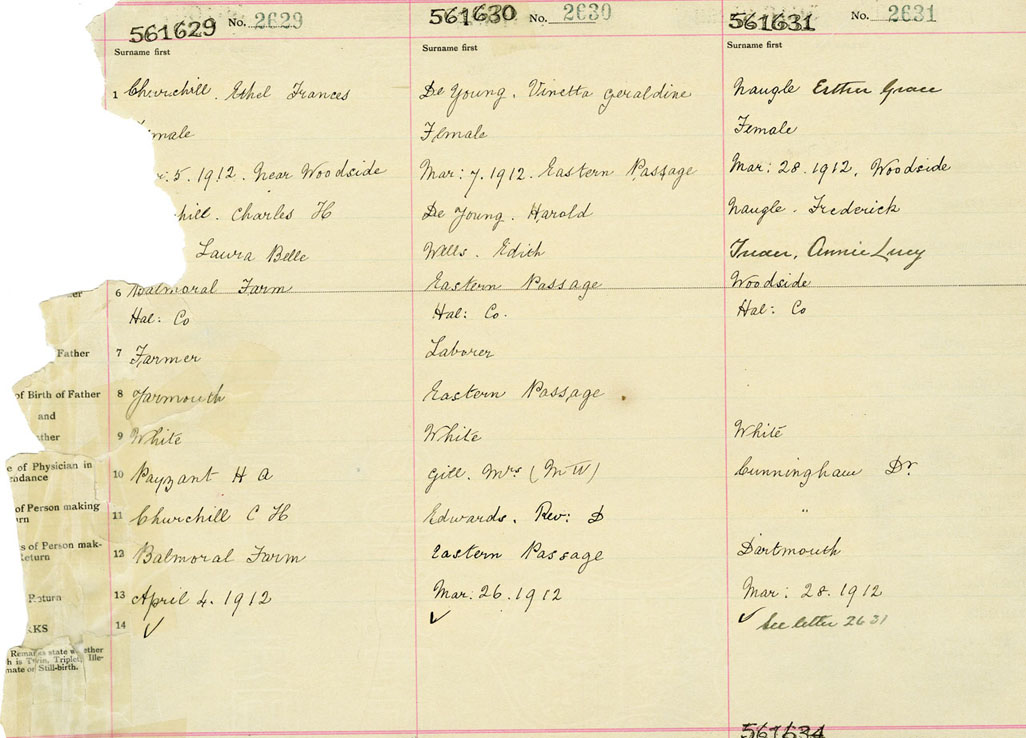 561629 No. 2629
Surname first
1 Churchill. Ethel Frances
male
5. 1912. Near Woodside
hill. Charles H
Laura Belle
6 Balmoral Farm
Hal: Co
Father 7 Farmer
of Birth of Father 8 Yarmouth
and
ther 9 White
e of Physician in
ndance 10 Payzant H A
of Person making
rn 11 Churchill C H
s of Person mak-
Return 12 Balmoral Farm
Return 13 April 4. 1912
RKS 14 ✓
Remarks state whether
h is Twin, Triplet, Ille-
mate or Still-birth.
561630 No. 2630
Surname first
De Young. Vinetta Geraldine
Female
Mar: 7. 1912. Eastern Passage
De Young. Harold
Wells. Edith
Eastern Passage
Hal: Co.
Laborer
Eastern Passage
White
Gill. Mrs (MW)
Edwards. Rev: D
Eastern Passage
Mar. 26. 1912
✓
561631 No. 2631
Surname first
Naugle Esther Grace
Female
Mar: 28. 1912. Woodside
Naugle. Frederick
Annie Lucy
Woodside
Hal: Co
White
Cunningham Dr.
"
Dartmouth
Mar: 28. 1912
✓ See letter 2631
561634